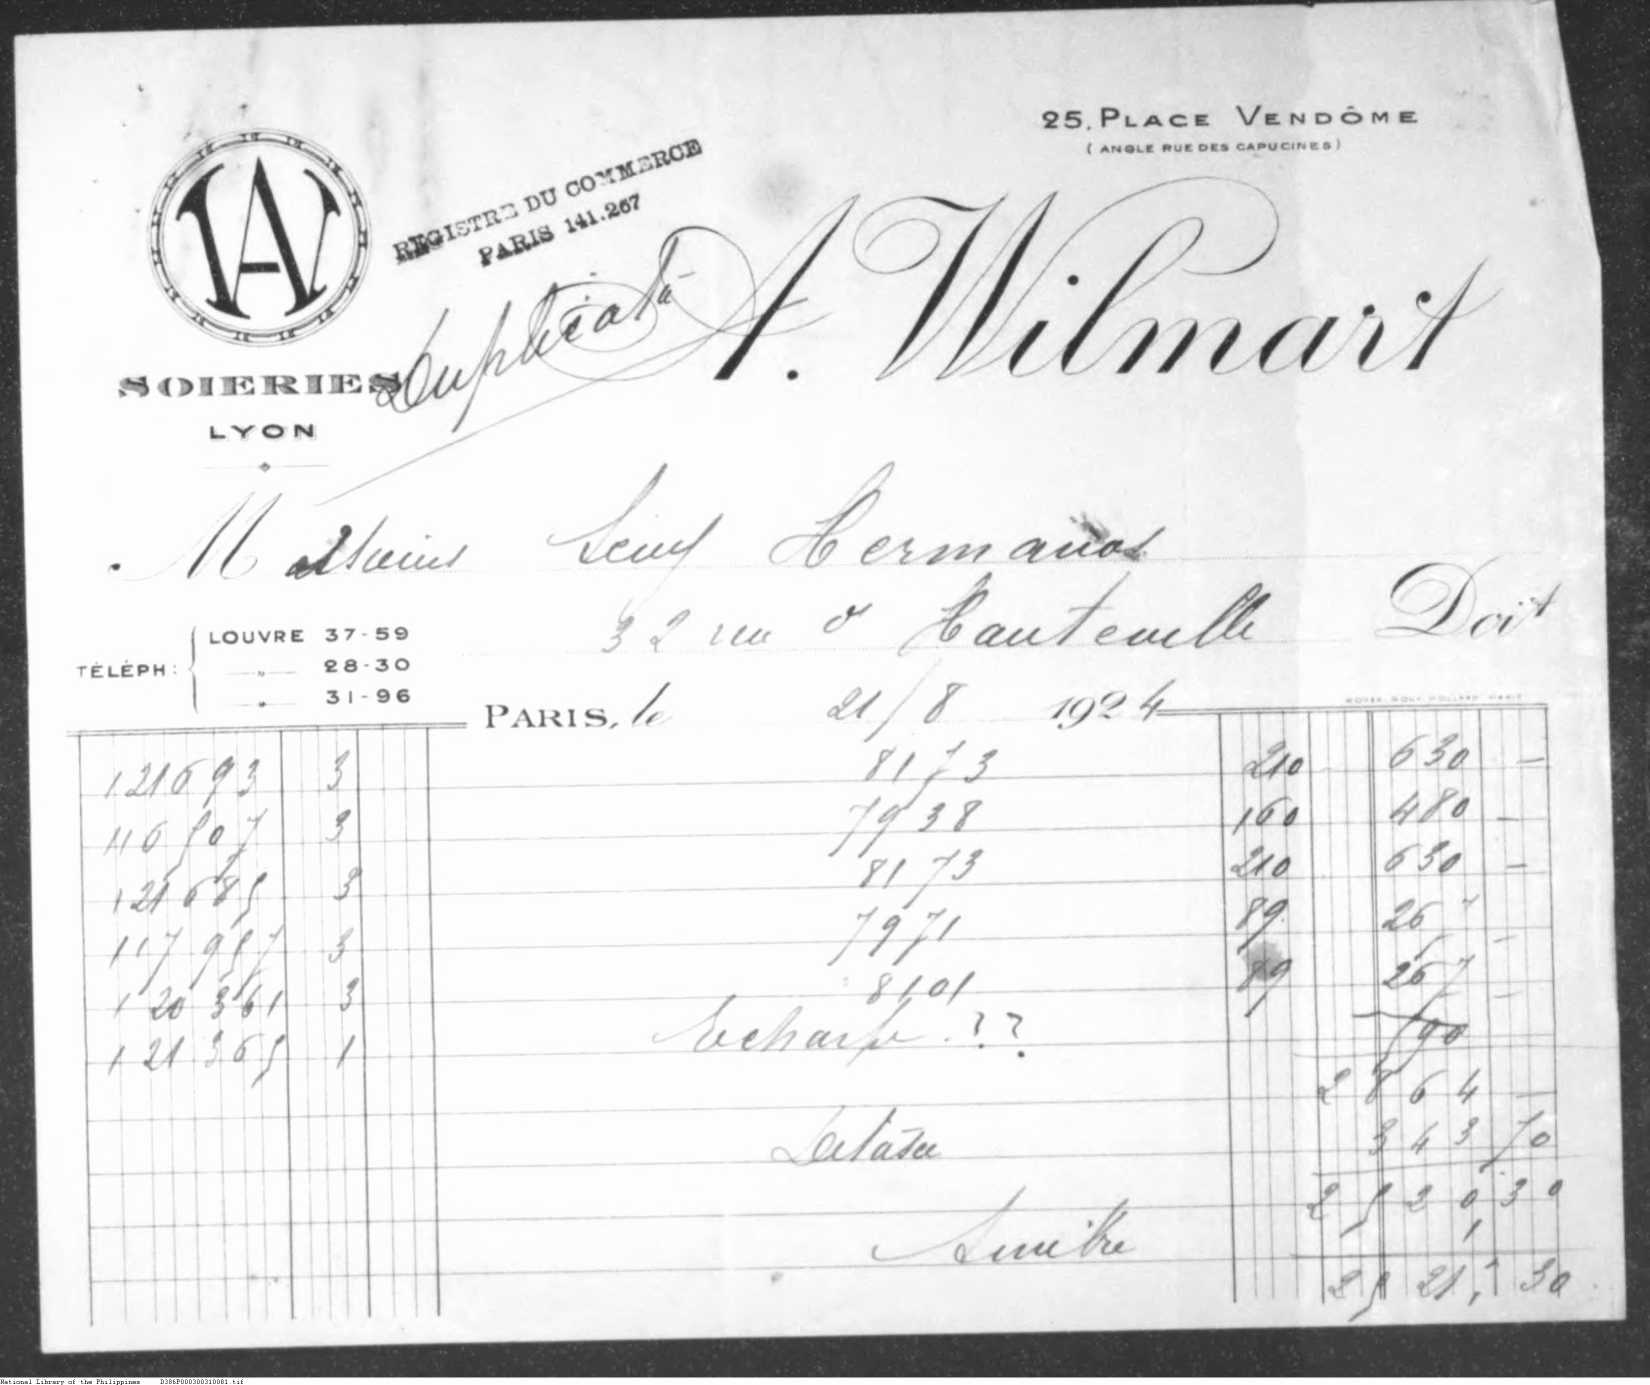 25, PLACE VENDÔME
(ANGLE RUE DES CAPUCINES)
REGISTRE DU COMMERCE
PARIS 141.267
A. Wilmart
Duplicata
SOIERIES
LYON
Messieurs Levy Hermanos
32 rue d'Hauteville Doit
TÉLÉPH: LOUVRE 37-59
" 28-30
" 31-96
PARIS, le 21/8 1924
121693 3 8173 210 630 —
116507 3 7938 160 480 —
121685 3 8173 210 630 —
117957 3 7971 89 267 —
120361 3 8101 89 267 —
121365 1 Echarpe ?? 590
2864 —
Détaxe 343 70
2520 30
Timbre 1
2521, 30
National Library of the Philippines D386P000300310001.tif